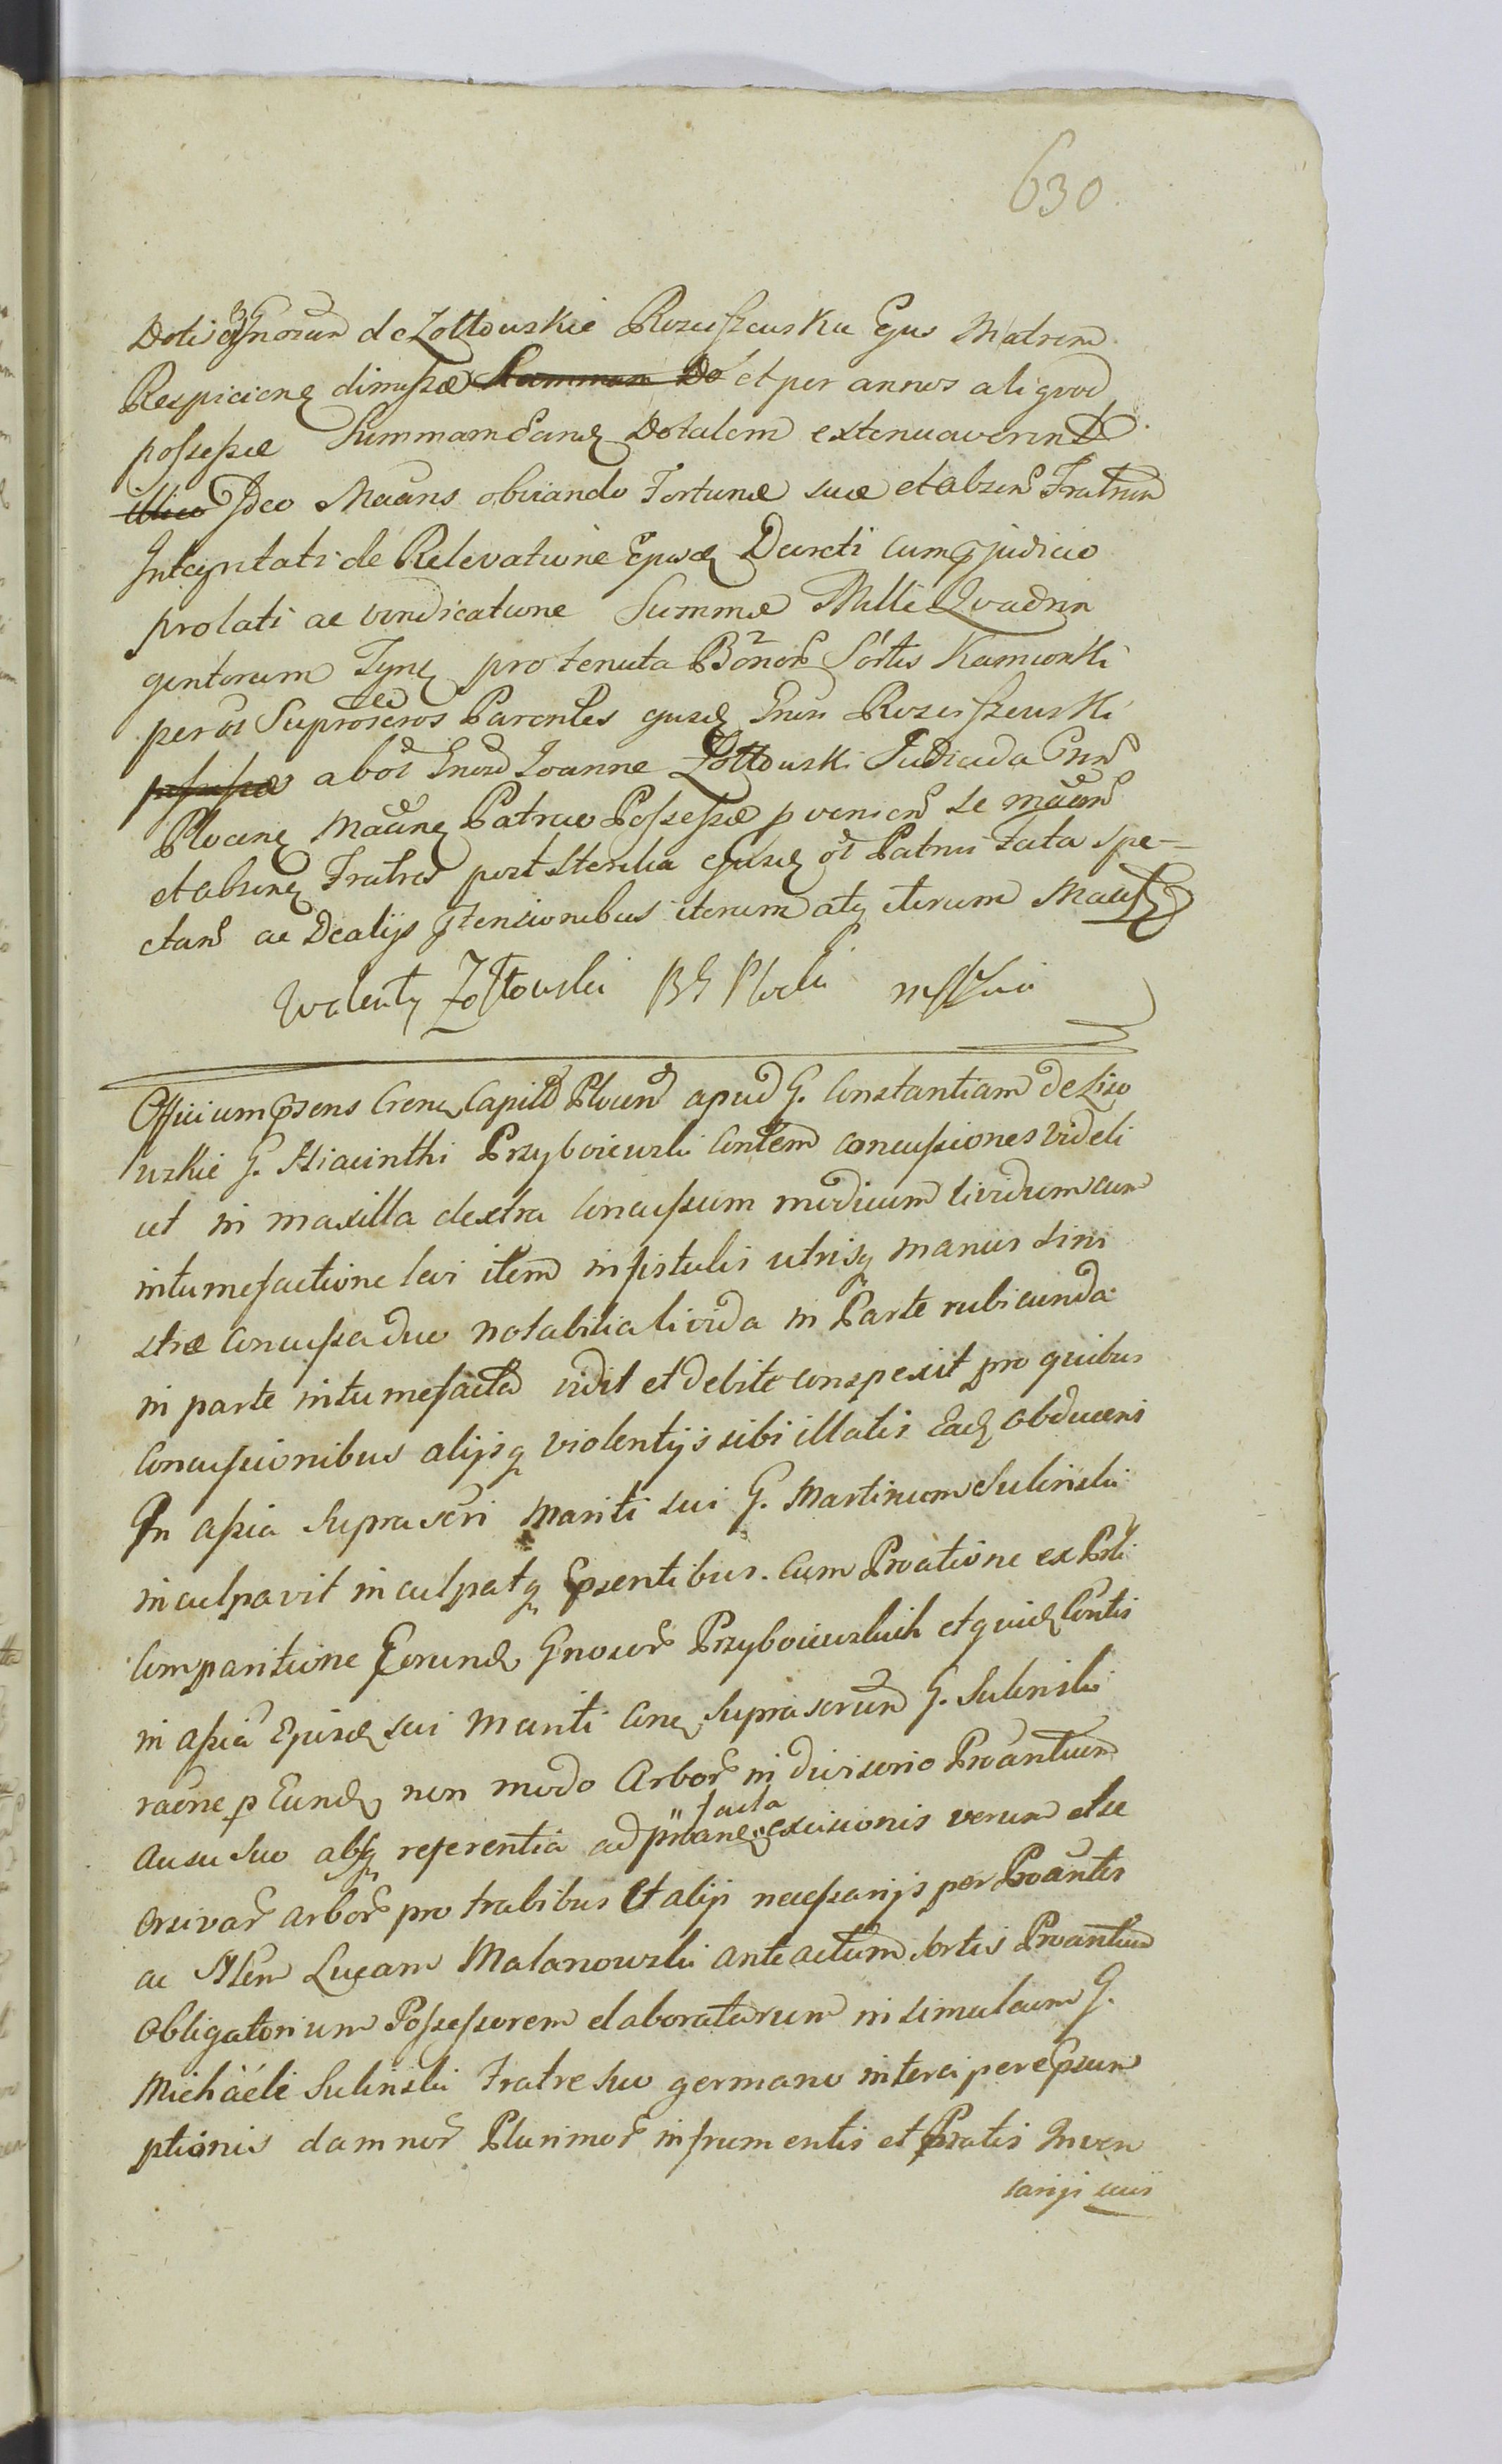 630.
Dotis Gnosam de Zołtowskie Rosciszewska Ejus Matrem
Respicienq dimissæ Summam Do et per annos aliqvod
possessæ Summam Eand Dotalem extenuaverint
illico Ideo Maans obviando Fortunæ suæ et absen Fratrum
Integritati de Relevatione Ejusd Decreti cum pjudicio
prolati ac vindicatione Summæ Mille Qvadrin
gentorum Tynf pro tenuta Bonor Sortis Kamionki
per oi Suprascros Parentes ejusd Gnen Rosciszewski
possessæ ab oi Gneso Joanne Zołtowski Judicada Gnr
Plocen Maane Patruo Possessæ pvenien se maann
et absene Fratres post sterilia ejusd oi Patrui Fata spe-
ctan ac De alijs ptensionibus iterum atq iterum Maasf
Walenty Zołtowski BG Płocki mpria
Officium psens Crene Capitle Plocen apud G. Constantiam de Liso
wskie G. Hiacinthi Przyboiewski Contem concussiones videli
cet in maxilla dextra concussum modicum lividum cum
intumefactione levi item in fistulis utrisq manus sini
stræ concussa duo notabilia livida in Parte rubicunda
in parte intumefacta vidit et debite conspexit pro quibus
Concussionibus alijsq violentijs sibi illatis Ead obducens
In assia supra scri Mariti sui G. Martinum Sulinski
inculpavit inculpatq Epsentibus. Cum Proatione ex Prli
Comparitione Eorund Gnosor Przyboiewskich et quid Contis
in assia Ejusd sui Mariti Cone suprascrum G. Sulinski
raone p Eund non modo Arbor in divisorio Proantium
Ausu suo absq referentia ad proane facta excisionis verum etse
orsivar arbor pro trabibus Et alijs necessarijs per Proantes
ac Hem Lucam Malanowski ante actum sortis Proantium
Obligatorium Possessorem elaboratarum insimul cum G.
Michaéle Sulinski Fratre suo germano intercipere psum
ptionis damnor Plurimor in frumentis et Pratis Inven
tarijs suis